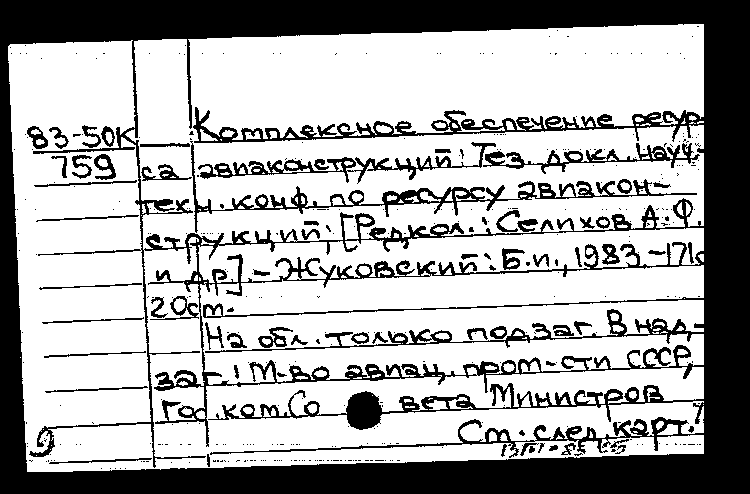 83-50К
759
Комплексное обеспечение ресур-
са авиаконструкций: Тез. докл. науч.-
техн. конф. по ресурсу авиакон-
струкций; [Редкол.: Селихов А.Ф.
и др]. - Жуковский: Б.и., 1983.-171с
20см.
На обл. только подзаг. В над-
заг.: М-во авиац. пром-сти СССР,
Гос. ком. Со вета Министров
См. след. карт.
9